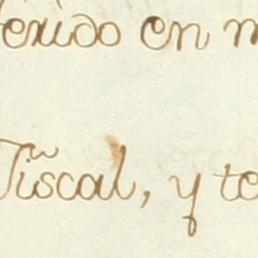 erido en
Fiscal, y te